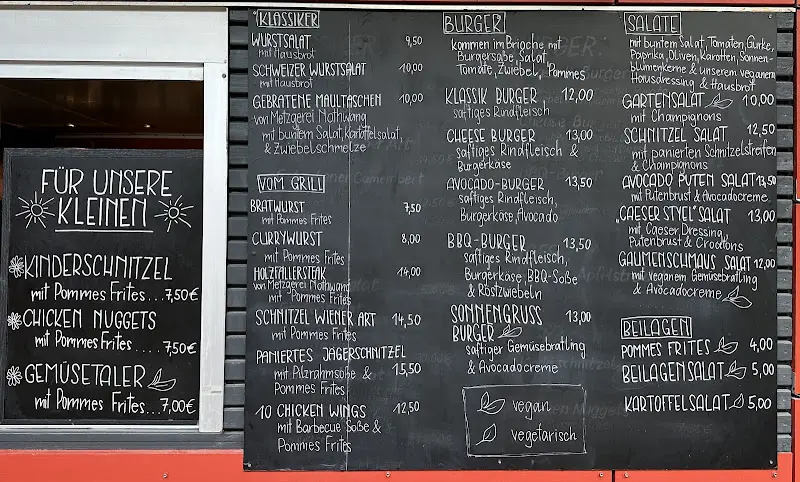 FÜR UNSERE
KLEINEN
KINDERSCHNITZEL
mit Pommes Frites...7,50€
CHICKEN NUGGETS
mit Pommes Frites.... 7,50€
GEMÜSETALER
mit Pommes Frites...7,00€
KLASSIKER
WURSTSALAT 9,50
mit Hausbrot
SCHWEIZER WURSTSALAT 10,00
mit Hausbrot
GEBRATENE MAULTASCHEN 10,00
von Metzgerei Nothwang
mit buntem Salat, Kartoffelsalat,
& Zwiebelschmelze
VOM GRILL
BRATWURST 7,50
mit Pommes Frites
CURRYWURST 8,00
mit Pommes Frites
HOLZFÄLLERSTEAK 14,00
von Metzgerei Nothwang
mit Pommes Frites
SCHNITZEL WIENER ART 14,50
mit Pommes Frites
PANIERTES JÄGERSCHNITZEL
mit Pilzrahmsoße & 15,50
Pommes Frites
10 CHICKEN WINGS 12,50
mit Barbecue Soße &
Pommes Frites
BURGER
kommen im Brioche mit
Burgersoße, Salat
Tomate, Zwiebel, Pommes
KLASSIK BURGER 12,00
saftiges Rindfleisch
CHEESE BURGER 13,00
saftiges Rindfleisch &
Burgerkäse
AVOCADO-BURGER 13,50
saftiges Rindfleisch,
Burgerkäse, Avocado
BBQ-BURGER 13,50
saftiges Rindfleisch,
Burgerkäse, BBQ-Soße
& Röstzwiebeln
SONNENGRUSS 13,00
BURGER
saftiger Gemüsebratling
& Avocadocreme
vegan
vegetarisch
SALATE
mit buntem Salat, Tomaten, Gurke,
Paprika, Oliven, Karotten, Sonnen-
blumenkerne & unserem veganem
Hausdressing & Hausbrot
GARTENSALAT 10,00
mit Champignons
SCHNITZEL SALAT 12,50
mit panierten Schnitzelstreifen
& Champignons
AVOCADO PUTEN SALAT 13,50
mit Putenbrust & Avocadocreme
„CAESER STYLE" SALAT 13,00
mit Caeser Dressing,
Putenbrust & Croutons
GAUMENSCHMAUS SALAT 12,00
mit veganem Gemüsebratling
& Avocadocreme
BEILAGEN
POMMES FRITES 4,00
BEILAGENSALAT 5,00
KARTOFFELSALAT 5,00